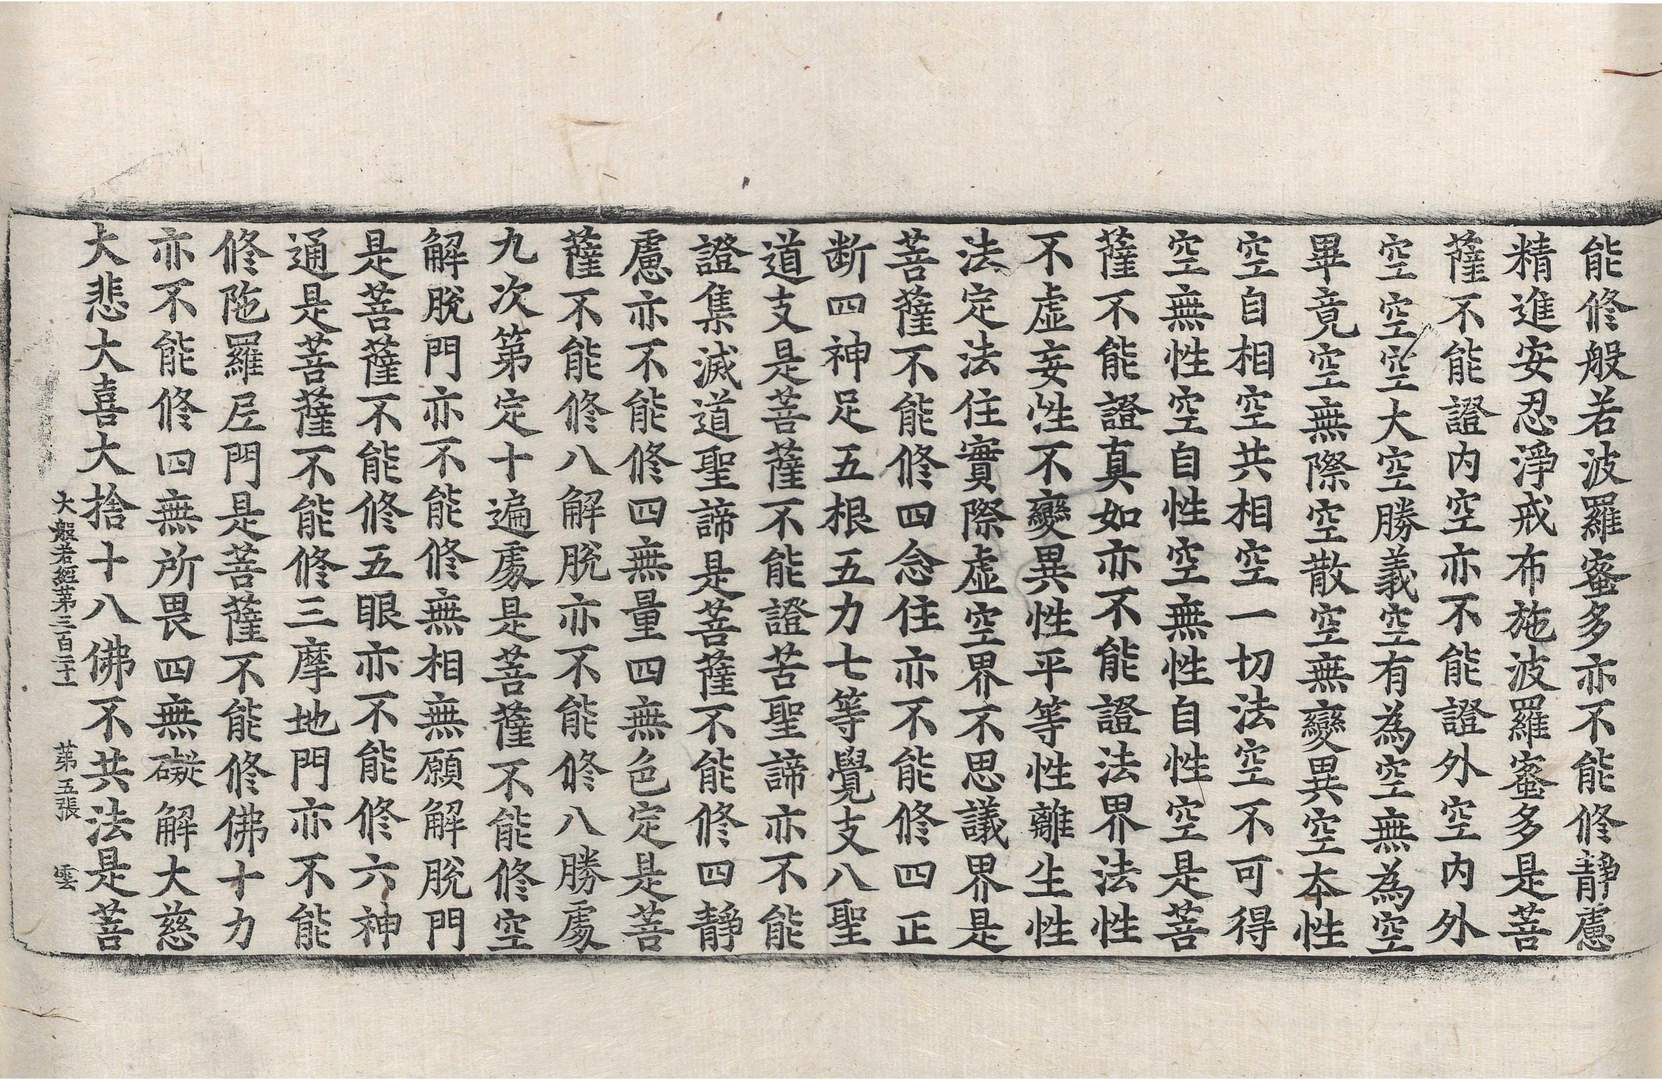 能修般若波羅蜜多亦不能修靜慮
精進安忍淨戒布施波羅蜜多是菩
薩不能證內空亦不能證外空內外
空空空大空勝義空有為空無為空
畢竟空無際空散空無變異空本性
空自相空共相空一切法空不可得
空無性空自性空無性自性空是菩
薩不能證真如亦不能證法界法性
不虛妄性不變異性平等性離生性
法定法住實際虛空界不思議界是
菩薩不能修四念住亦不能修四正
断四神足五根五力七等覺支八聖
道支是菩薩不能證苦聖諦亦不能
證集滅道聖諦是菩薩不能修四靜
慮亦不能修四無量四無色定是菩
薩不能修八解脫亦不能修八勝處
九次第定十遍處是菩薩不能修空
解脫門亦不能修無相無願解脫門
是菩薩不能修五眼亦不能修六神
通是菩薩不能修三摩地門亦不能
修陁羅尼門是菩薩不能修佛十力
亦不能修四無所畏四無礙解大慈
大悲大喜大捨十八佛不共法是菩
大般若經第三百二十一 第五張 雲